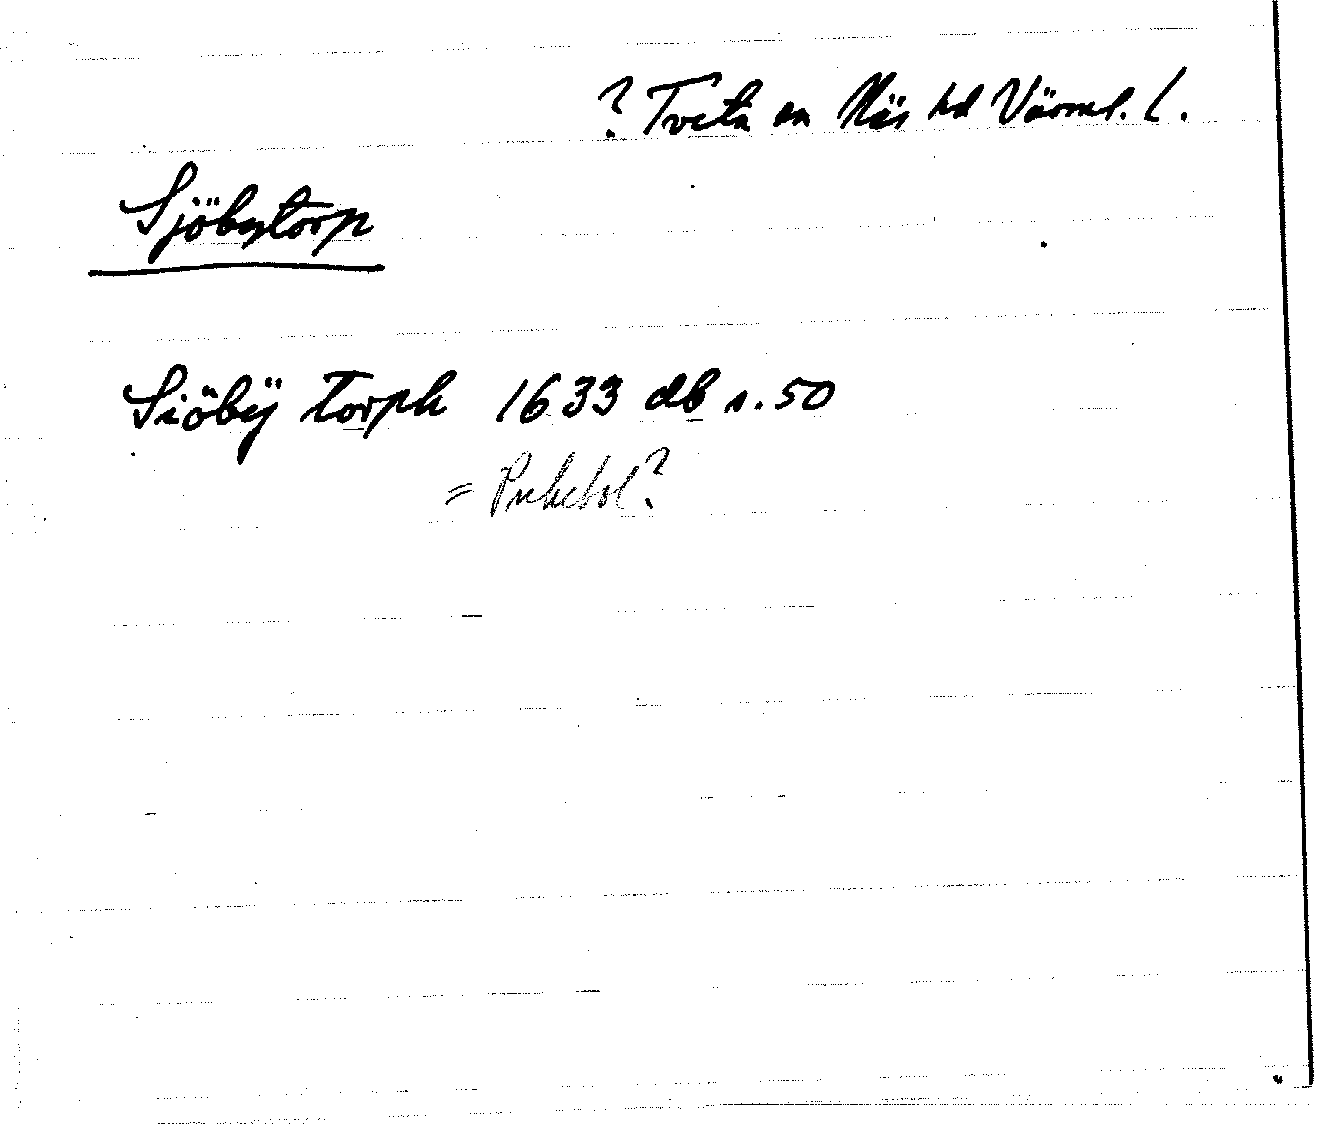 ? Tveta sn Näs hd Värml. l.
Sjöbytorp
Siöbÿ torph 1633 db s. 50
= Pukebol?